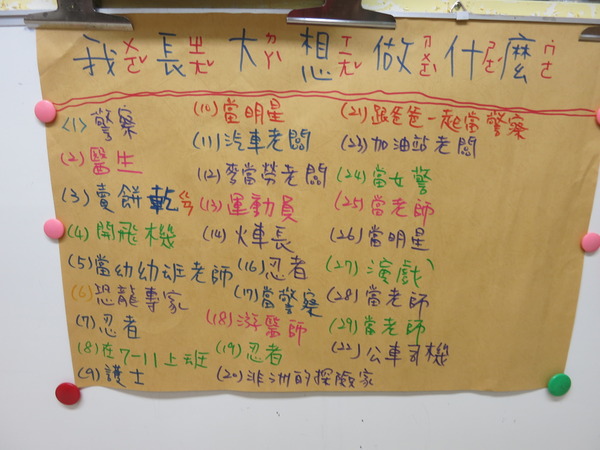 我長大想做什麼
(1) 警察
(2) 醫生
(3) 賣餅乾ㄍㄢ
(4) 開飛機
(5) 當幼幼班老師
(6) 恐龍專家
(7) 忍者
(8) 在7-11上班
(9) 護士
(10) 當明星
(11) 汽車老闆
(12) 麥當勞老闆
(13) 運動員
(14) 火車長
(16) 忍者
(17) 當警察
(18) 游醫師
(19) 忍者
(20) 非洲的探險家
(21) 跟爸爸一起當警察
(23) 加油站老闆
(24) 當女警
(25) 當老師
(26) 當明星
(27) 演戲
(28) 當老師
(29) 當老師
(22) 公車司機